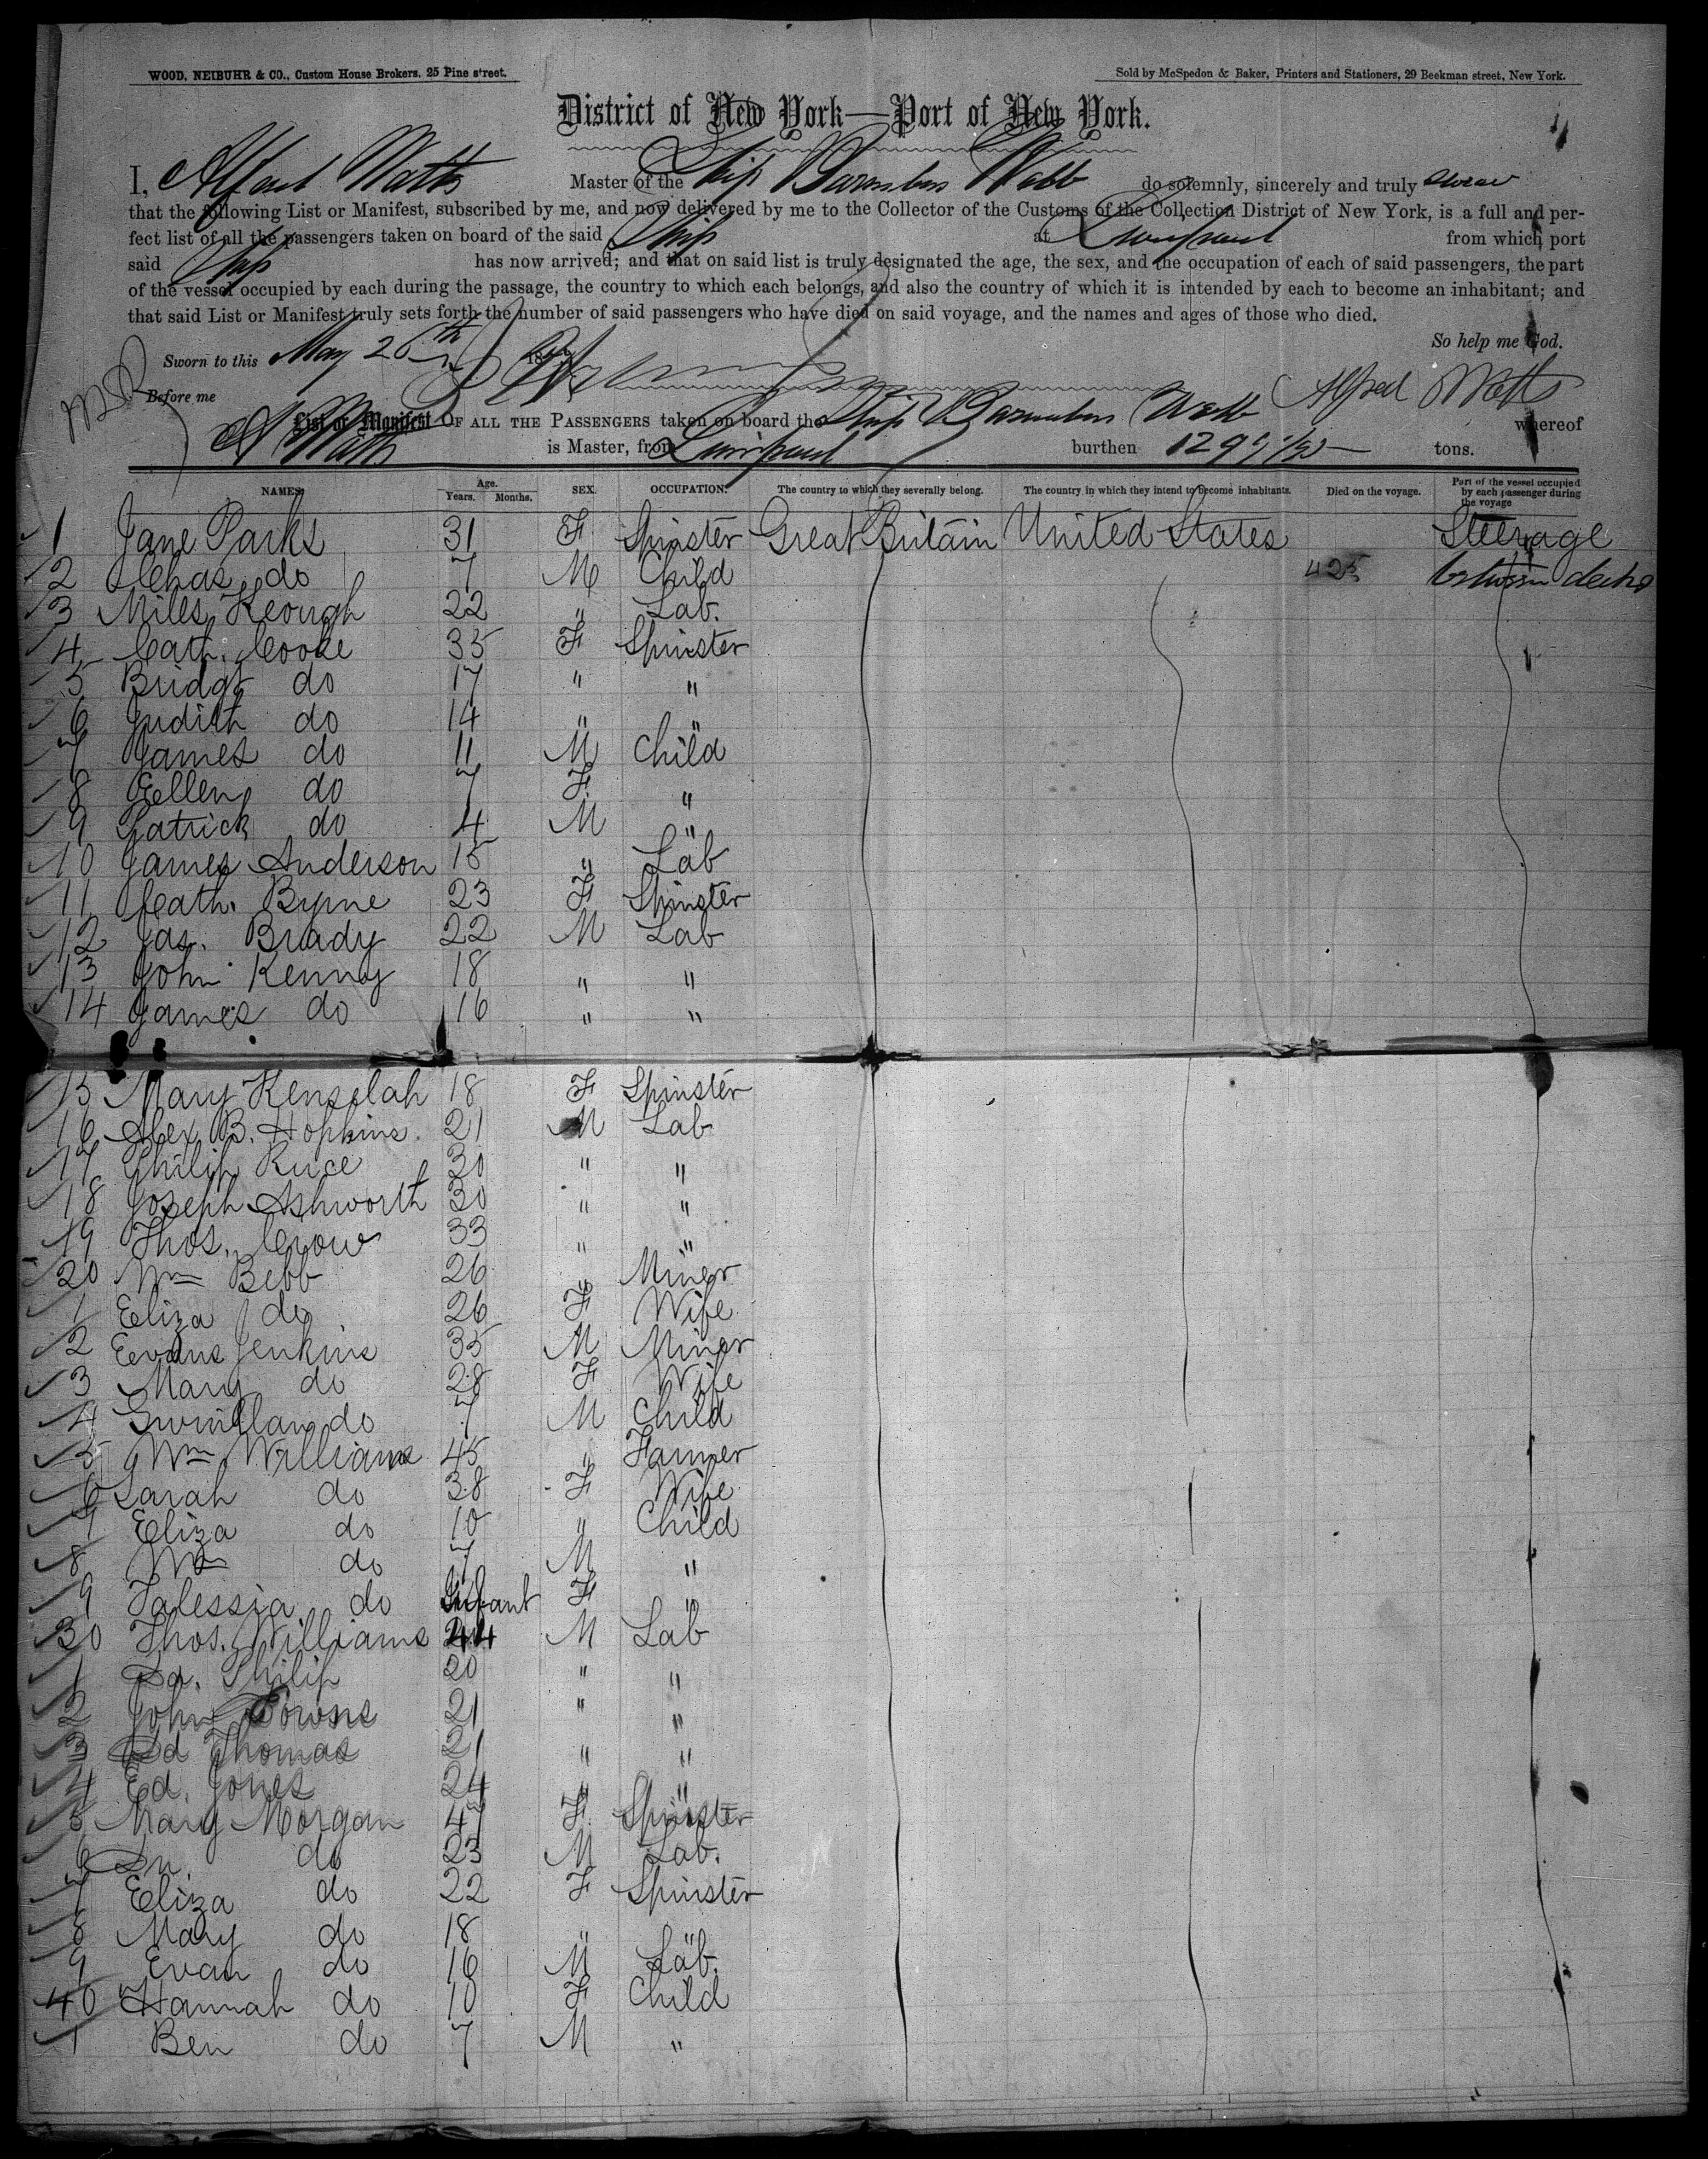 WOOD, NEIBUHR & CO., Custom House Brokers, 25 Pine street.
Sold by McSpedon & Baker, Printers and Stationers, 29 Beekman street, New York.
District of New York—Port of New York.
I, Alfred Watts Master of the Ship Barnabas Webb do solemnly, sincerely and truly swear
that the following List or Manifest, subscribed by me, and now delivered by me to the Collector of the Customs of the Collection District of New York, is a full and per-
fect list of all the passengers taken on board of the said Ship at Liverpool from which port
said Ship has now arrived; and that on said list is truly designated the age, the sex, and the occupation of each of said passengers, the part
of the vessel occupied by each during the passage, the country to which each belongs, and also the country of which it is intended by each to become an inhabitant; and
that said List or Manifest truly sets forth the number of said passengers who have died on said voyage, and the names and ages of those who died.
So help me God.
Sworn to this May 26th 18
Before me Alfred Watts
List or Manifest OF ALL THE PASSENGERS taken on board the Ship Barnabas Webb whereof
A Watts is Master, from Liverpool burthen tons.
NAMES. Age. Years. Months. SEX. OCCUPATION. The country to which they severally belong. The country in which they intend to become inhabitants. Died on the voyage. Part of the vessel occupied by each passenger during the voyage
1 Jane Parks 31 F Spinster Great Britain United States Steerage
2 Chas do 7 M Child 425 between decks
3 Miles Keough 22 " Lab.
4 Cath. Cooke 35 F Spinster
5 Bridgt do 17 " "
6 Judith do 14 " "
7 James do 11 M Child
8 Ellen do 7 F "
9 Patrick do 4 M "
10 James Anderson 15 " Lab
11 Cath. Byrne 23 F Spinster
12 Jas. Brady 22 M Lab
13 John Kenny 18 " "
14 James do 16 " "
15 Mary Kenselah 18 F Spinster
16 Alex B. Hopkins 21 M Lab
17 Philip Rice 30 " "
18 Joseph Ashworth 30 " "
19 Thos. Crow 33 " "
20 Wm Bebb 26 " Miner
1 Eliza do 26 F Wife
2 Evans Jenkins 35 M Miner
3 Mary do 28 F Wife
4 do 7 M Child
5 Wm Williams 45 " Farmer
6 Sarah do 38 F Wife
7 Eliza do 10 " Child
8 Wm do 7 M "
9 Talessia do Infant F "
30 Thos. Williams 24 M Lab
1 Philip 20 " "
2 John 21 " "
3 Dd Thomas 21 " "
4 Ed. Jones 24 " "
5 Mary Morgan 47 F Spinster
6 do 23 M Lab.
7 Eliza do 22 F Spinster
8 Mary do 18 " "
9 Evan do 16 M Lab.
40 Hannah do 10 F Child
1 Ben do 7 M "